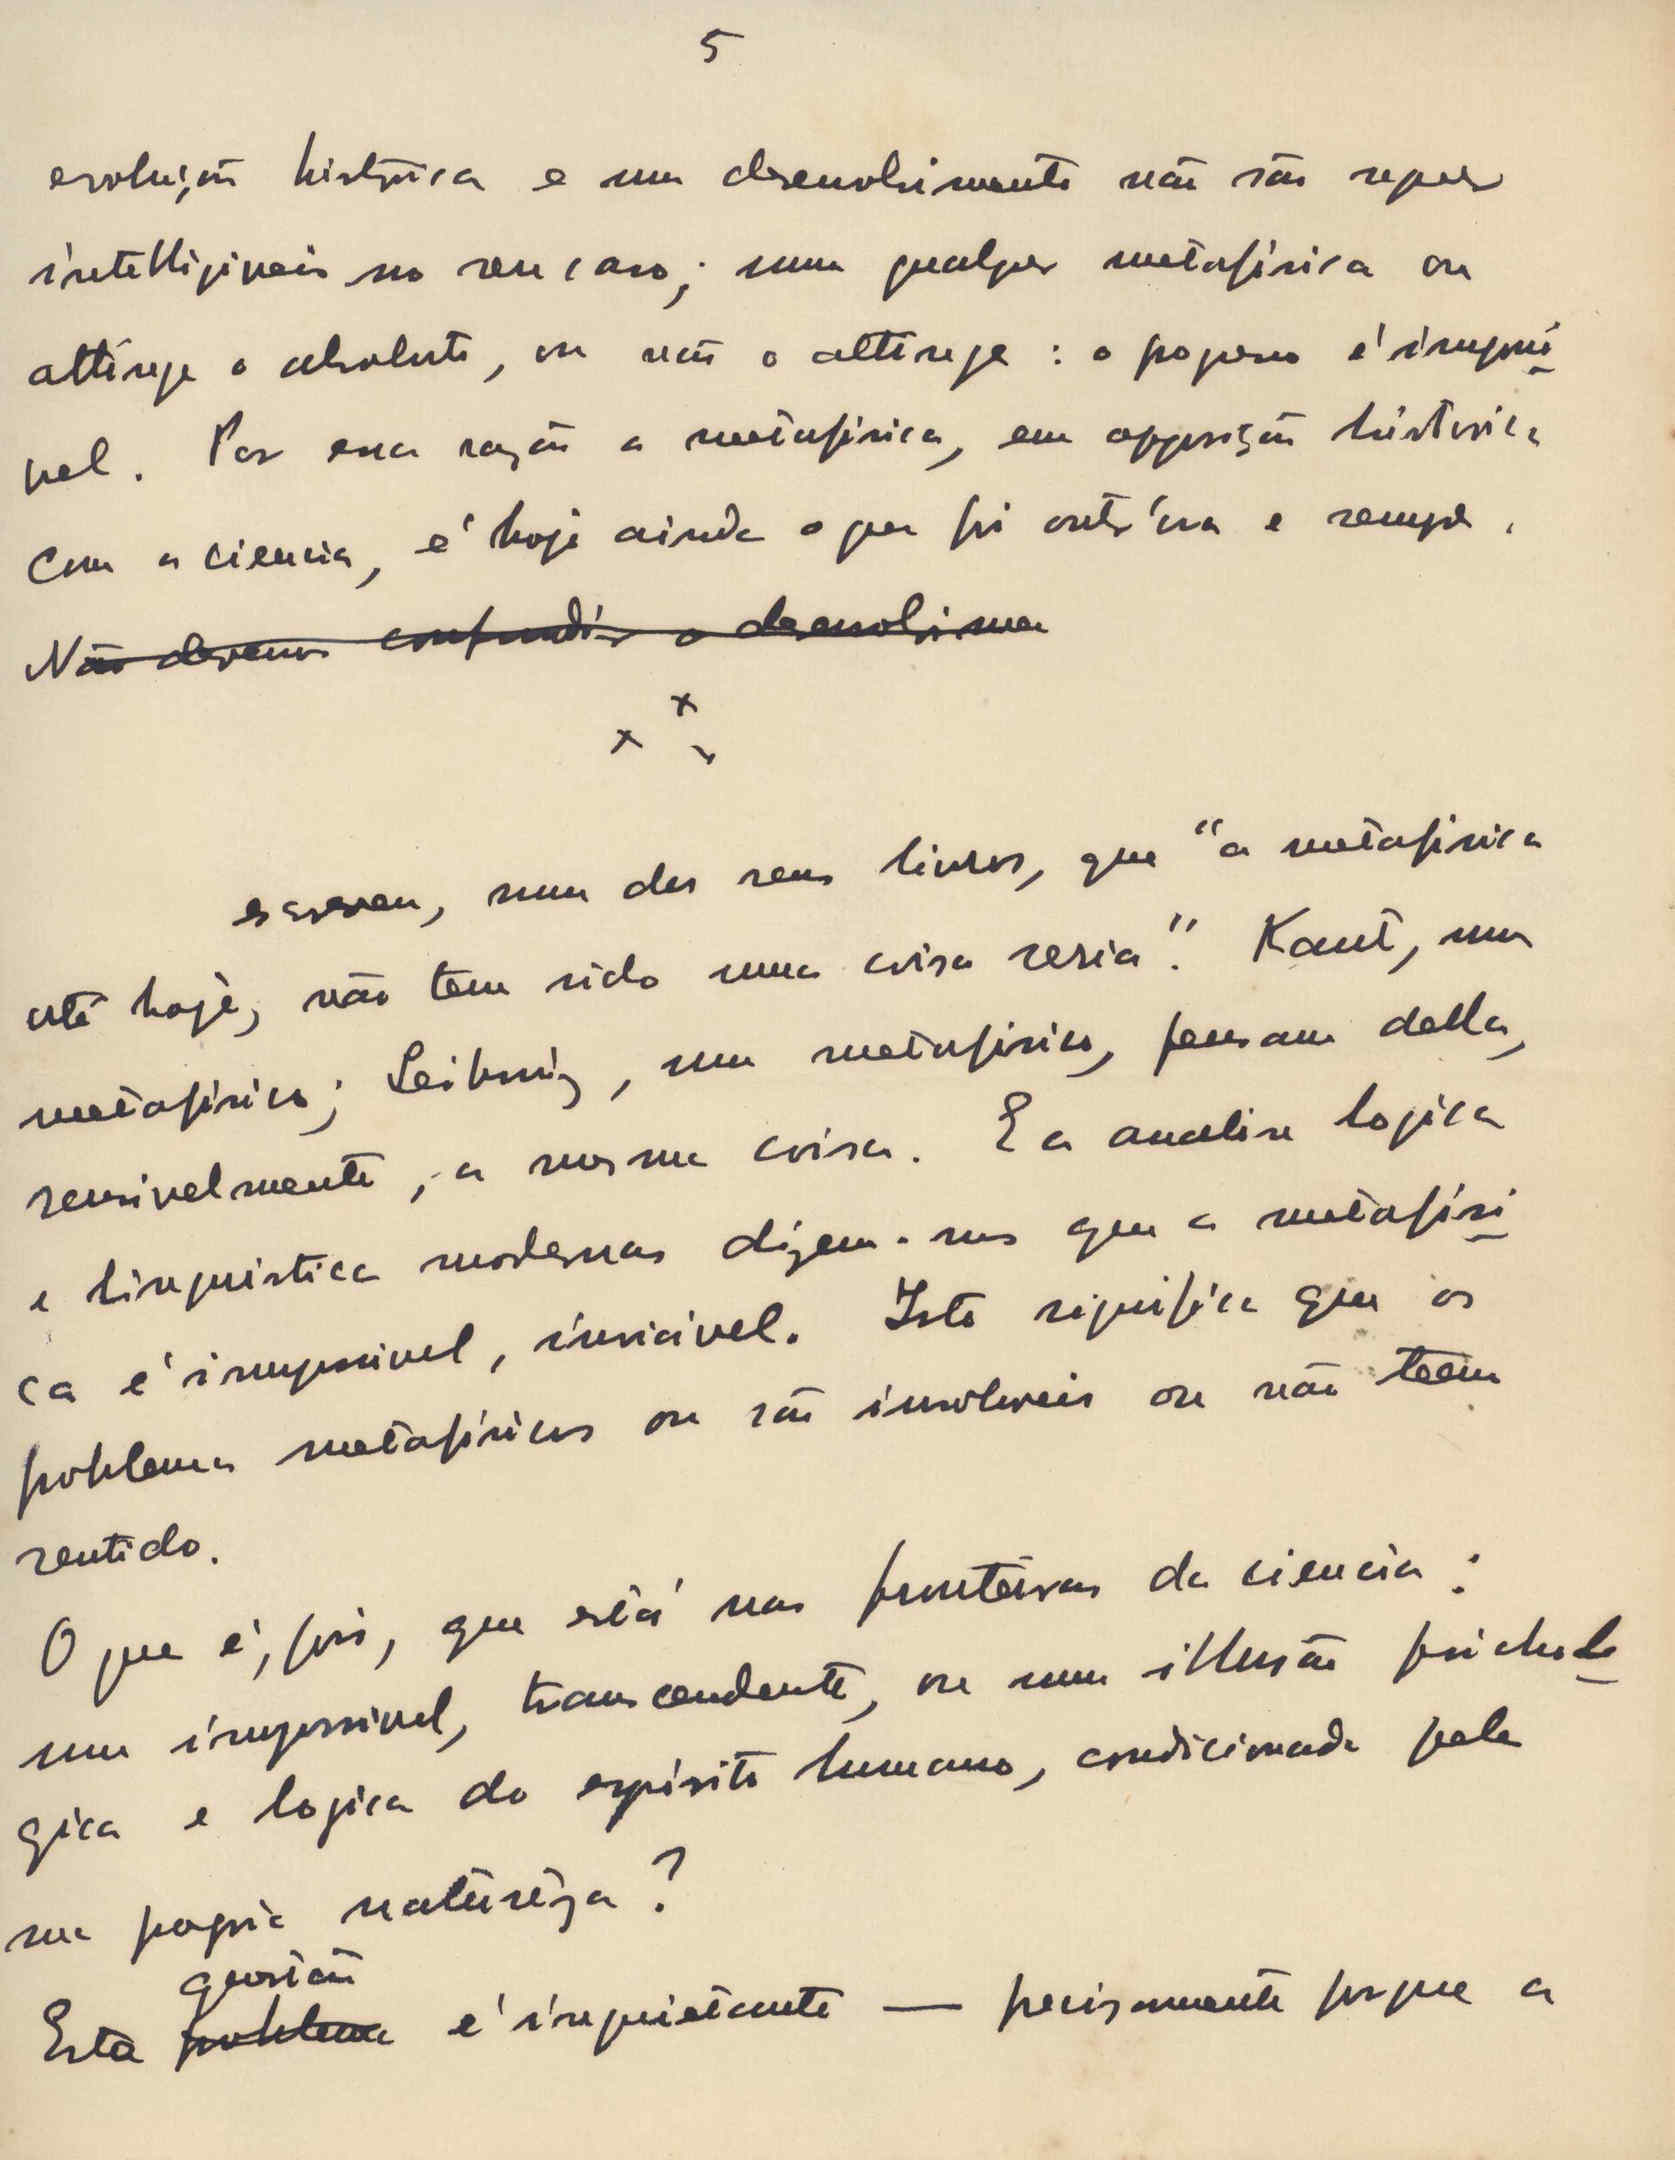 5
evolução histórica e um desenvolvimento não são sequer
intelligiveis no seu caso; uma qualquer metafísica ou
attinge o absoluto, ou não o attinge: o progresso é impossi
vel. Por essa razão a metafísica, em opposição histórica
com a ciencia, é hoje ainda o que foi outr'ora e sempre.
Não devemos confundir o desenvolvimen
x x x
escreveu, num dos seus livros, que "a metafísica
até hoje, não tem sido uma coisa seria". Kant, um
metafísico; Leibniz, um metafísico, pensam della,
sensivelmente, a mesma coisa. E a analise logica
e linguistica modernas dizem-nos que a metafísi
ca é impossivel, inviavel. Isto significa que os
problemas metafísicos ou são insoluveis ou não teem
sentido.
O que é, pois, que está nas fronteiras da ciencia:
um impossivel, transcendente, ou uma illusão psicholo
gica e logica do espirito humano, condicionada pela
sua propria natureza?
questão
Esta problema é inquietante — precisamente porque a